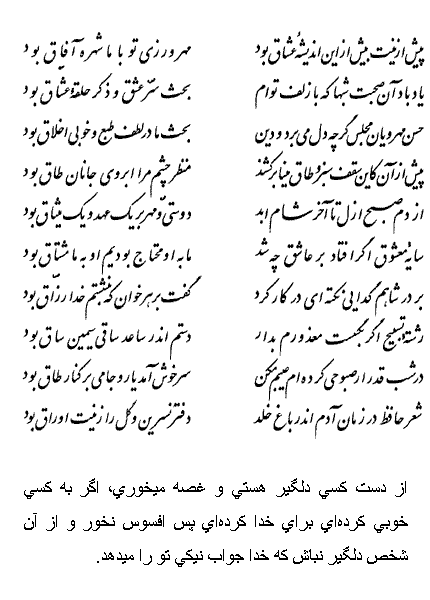 پیش ازینت بیش ازین اندیشهٔ عشاق بود مهرورزی تو با ما شهره آفاق بود
یاد باد آن صحبت شبها که با زلف توام بحث سرّ عشق و ذکر حلقهٔ عشاق بود
حسن مهرویان مجلس گرچه دل می برد و دین بحث ما در لطف طبع و خوبی اخلاق بود
پیش از آن کاین سقف سبز و طاق مینا برکشند منظر چشم مرا ابروی جانان طاق بود
از دم صبح ازل تا آخر شام ابد دوستی و مهر بر یک عهد و یک میثاق بود
سایه معشوق اگر افتاد بر عاشق چه شد ما به او محتاج بودیم او به ما مشتاق بود
بر در شاهم گدایی نکته ای در کار کرد گفت بر هر خوان که بنشستم خدا رزّاق بود
رشته تسبیح اگر بگسست معذورم بدار دستم اندر ساعد ساقی سیمین ساق بود
در شب قدر ار صبوحی کرده ام عیبم مکن سرخوش آمد یار و جامی بر کنار طاق بود
شعر حافظ در زمان آدم اندر باغ خلد دفتر نسرین و گل را زینت اوراق بود
از دست كسي دلگير هستي و غصه ميخوري، اگر به كسي
خوبي كرده‌اي براي خدا كرده‌اي پس افسوس نخور و از آن
شخص دلگير نباش كه خدا جواب نيكي تو را ميدهد.